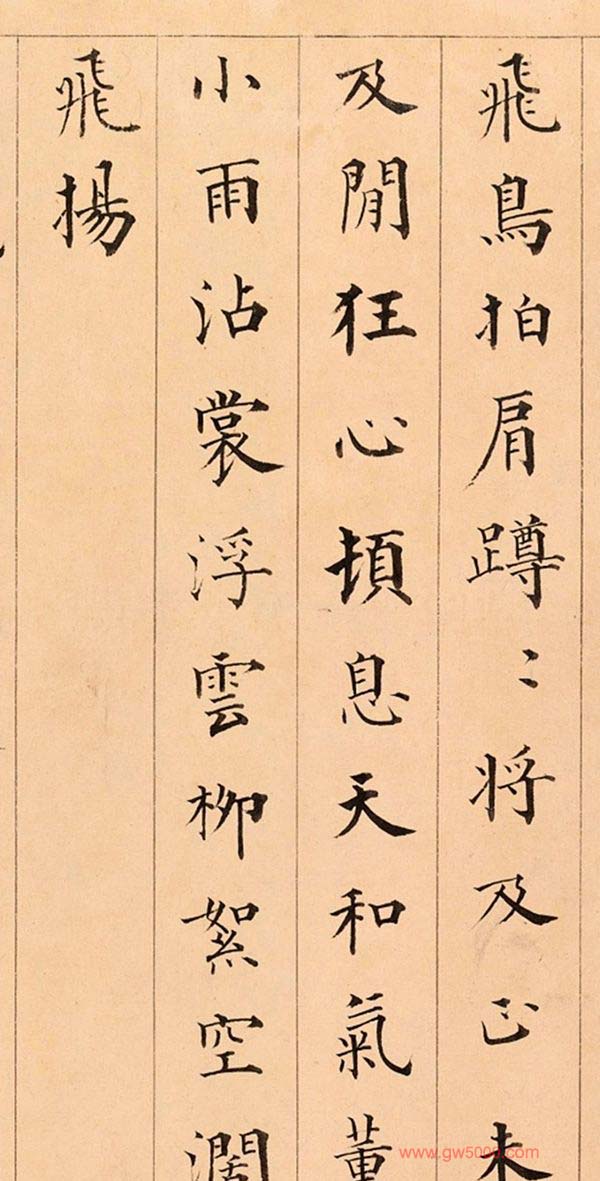 飛鳥拍肩蹲〻将及正未
及閒狂心頓息天和氣
小雨沾裳浮雲柳絮空濶
飛揚
www.gw5000.com